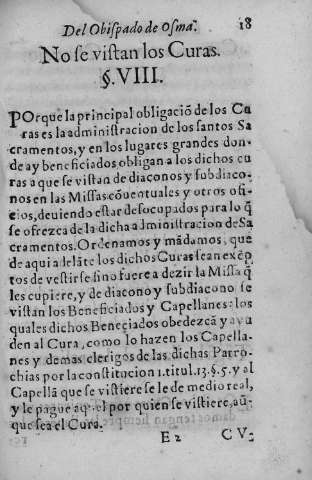 Del Obispado de Osma.
18
No se vistan los Curas.
§. VIII.
POrque la principal obligaciō de los Cu
ras es la administracion de los santos Sa
cramentos, y en los lugares grandes don-
de ay beneficiados obligan a los dichos cu
ras a que se vistan de diaconos y subdiaco-
nos en las Missas cōuentuales y otros ofi-
cios, deuiendo estar desocupados para lo q̃
se ofrezca de la dicha administracion de Sa
cramentos. Ordenamos y mādamos, que
de aqui adelāte los dichos Curas sean excẽp
tos de vestirse sino fuere a dezir la Missa q̃
les cupiere, y de diacono y subdiacono se
vistan los Beneficiados y Capellanes: los
quales dichos Beneciados obedezcā y ayu
den al Cura, como lo hazen los Capella-
nes y demas clerigos de las dichas Parro-
chias por la constitucion 1. titul. 13. §. 5. y al
Capellā que se vistiere se le de medio real,
y le pague aquel por quien se vistiere, aũ-
que sea el Cura.
E 2 CV-